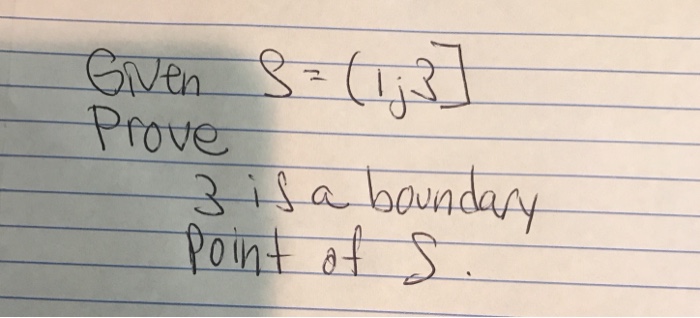 Given S = (1;3]
Prove
3 is a boundary
Point of S.